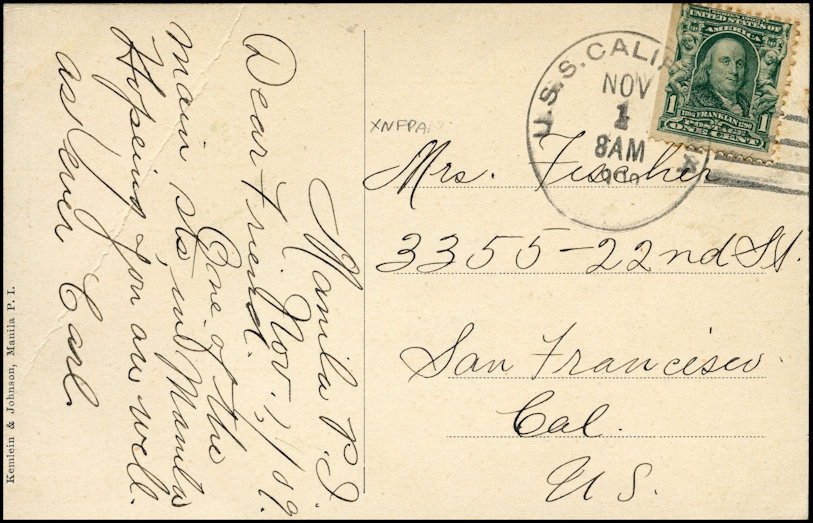 Manila P.I.
Nov. 1, /09.
Dear Friend.
One of the
main sts in Manila
Hopeing you are well.
as ever Carl.
Kemlein & Johnson, Manila P. I.
U.S.S. CALIF
NOV
1
8AM
UNITED STATES OF
AMERICA
1 FRANKLIN 1
ONE CENT
XNFPA
Mrs. Fischer
3355-22nd St.
San Francisco
Cal.
U S.